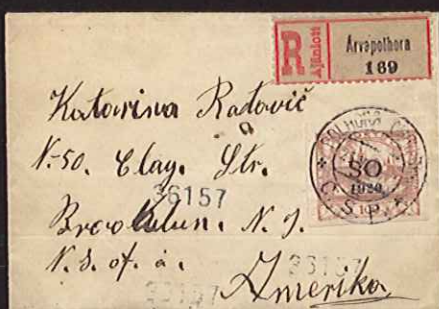 R
Ajánlott
Árvapolhora
169
Katarina Ratavič
N-50. Clay. Str.
36157
Brooklun. N. J.
N. S. of. a.
36157
Amerika
36157
POLHORA
SO
1920
Č. S. P.